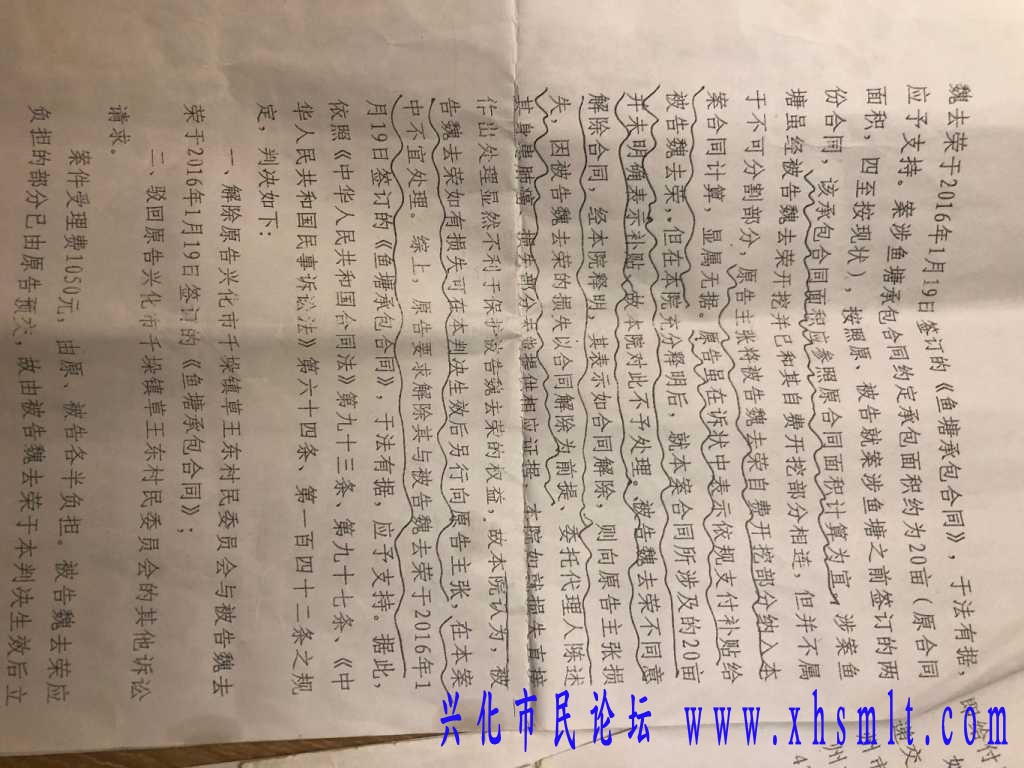 魏去荣于2016年1月19日签订的《鱼塘承包合同》，于法有据，
应予支持。案涉鱼塘承包合同约定承包面积约为20亩（原合同
面积、四至按现状），按照原、被告就案涉鱼塘之前签订的两
份合同，该承包合同面积应参照原合同面积计算为宜，涉案鱼
塘虽经被告魏去荣开挖并已和其自费开挖部分相连，但并不属
于不可分割部分，原告主张将被告魏去荣自费开挖部分纳入本
案合同计算，显属无据。原告虽在诉状中表示依规支付补贴给
被告魏去荣，但在本院充分释明后，就本案合同所涉及的20亩
并未明确表示补贴，故本院对此不予处理。被告魏去荣不同意
解除合同，经本院释明，其表示如合同解除，则向原告主张损
失，因被告魏去荣的损失以合同解除为前提、委托代理人陈述
损失部分 提供相应证据，本院如就损失直接
作出处理显然不利于保护被告魏去荣的权益，故本院认为，被
告魏去荣如有损失可在本判决生效后另行向原告主张，在本案
中不宜处理。综上，原告要求解除其与被告魏去荣于2016年1
月19日签订的《鱼塘承包合同》，于法有据，应予支持。据此，
依照《中华人民共和国合同法》第九十三条、第九十七条、《中
华人民共和国民事诉讼法》第六十四条、第一百四十二条之规
定，判决如下：
一、解除原告兴化市千垛镇草王东村民委员会与被告魏去
荣于2016年1月19日签订的《鱼塘承包合同》；
二、驳回原告兴化市千垛镇草王东村民委员会的其他诉讼
请求。
案件受理费1050元，由原、被告各半负担。被告魏去荣应
负担的部分已由原告预交，故由被告魏去荣于本判决生效后立
即给付
递交
州市
兴化市民论坛 www.xhsmlt.com